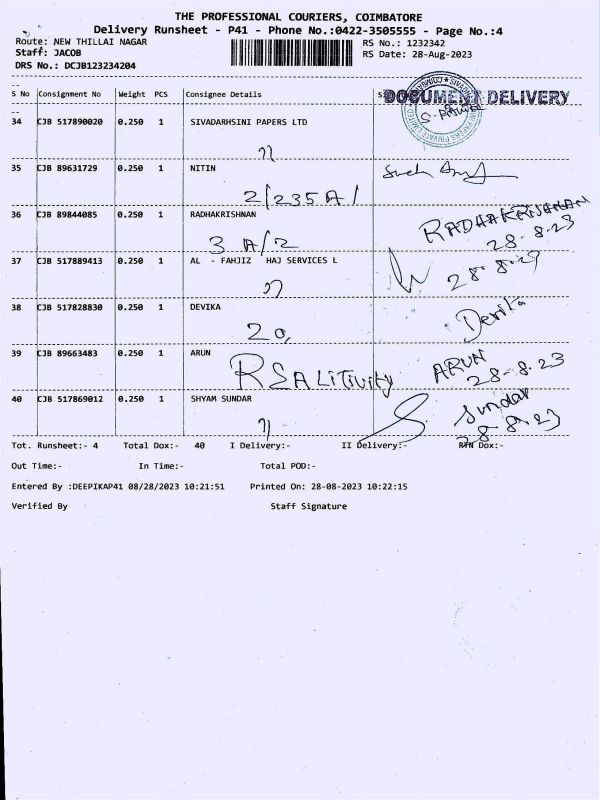 THE PROFESSIONAL COURIERS, COIMBATORE
Delivery Runsheet - P41 - Phone No.:0422-3505555 - Page No.:4
Route: NEW THILLAI NAGAR RS No.: 1232342
Staff: JACOB RS Date: 28-Aug-2023
DRS No.: DCJB123234204
S No Consignment No Weight PCS Consignee Details
DOCUMENT DELIVERY
34 CJB 517890020 0.250 1 SIVADARHSINI PAPERS LTD
35 CJB 89631729 0.250 1 NITIN
2/235A/
36 CJB 89844085 0.250 1 RADHAKRISHNAN RADHAKRISHNAN
3 A/2 28.8.23
37 CJB 517889413 0.250 1 AL - FAHJIZ HAJ SERVICES L
28.8.23
38 CJB 517828830 0.250 1 DEVIKA
20,
39 CJB 89663483 0.250 1 ARUN ARUN
28-8.23
40 CJB 517869012 0.250 1 SHYAM SUNDAR Sundar
28.8.23
Tot. Runsheet:- 4 Total Dox:- 40 I Delivery:- II Delivery:- RTN Dox:-
Out Time:- In Time:- Total POD:-
Entered By :DEEPIKAP41 08/28/2023 10:21:51 Printed On: 28-08-2023 10:22:15
Verified By Staff Signature